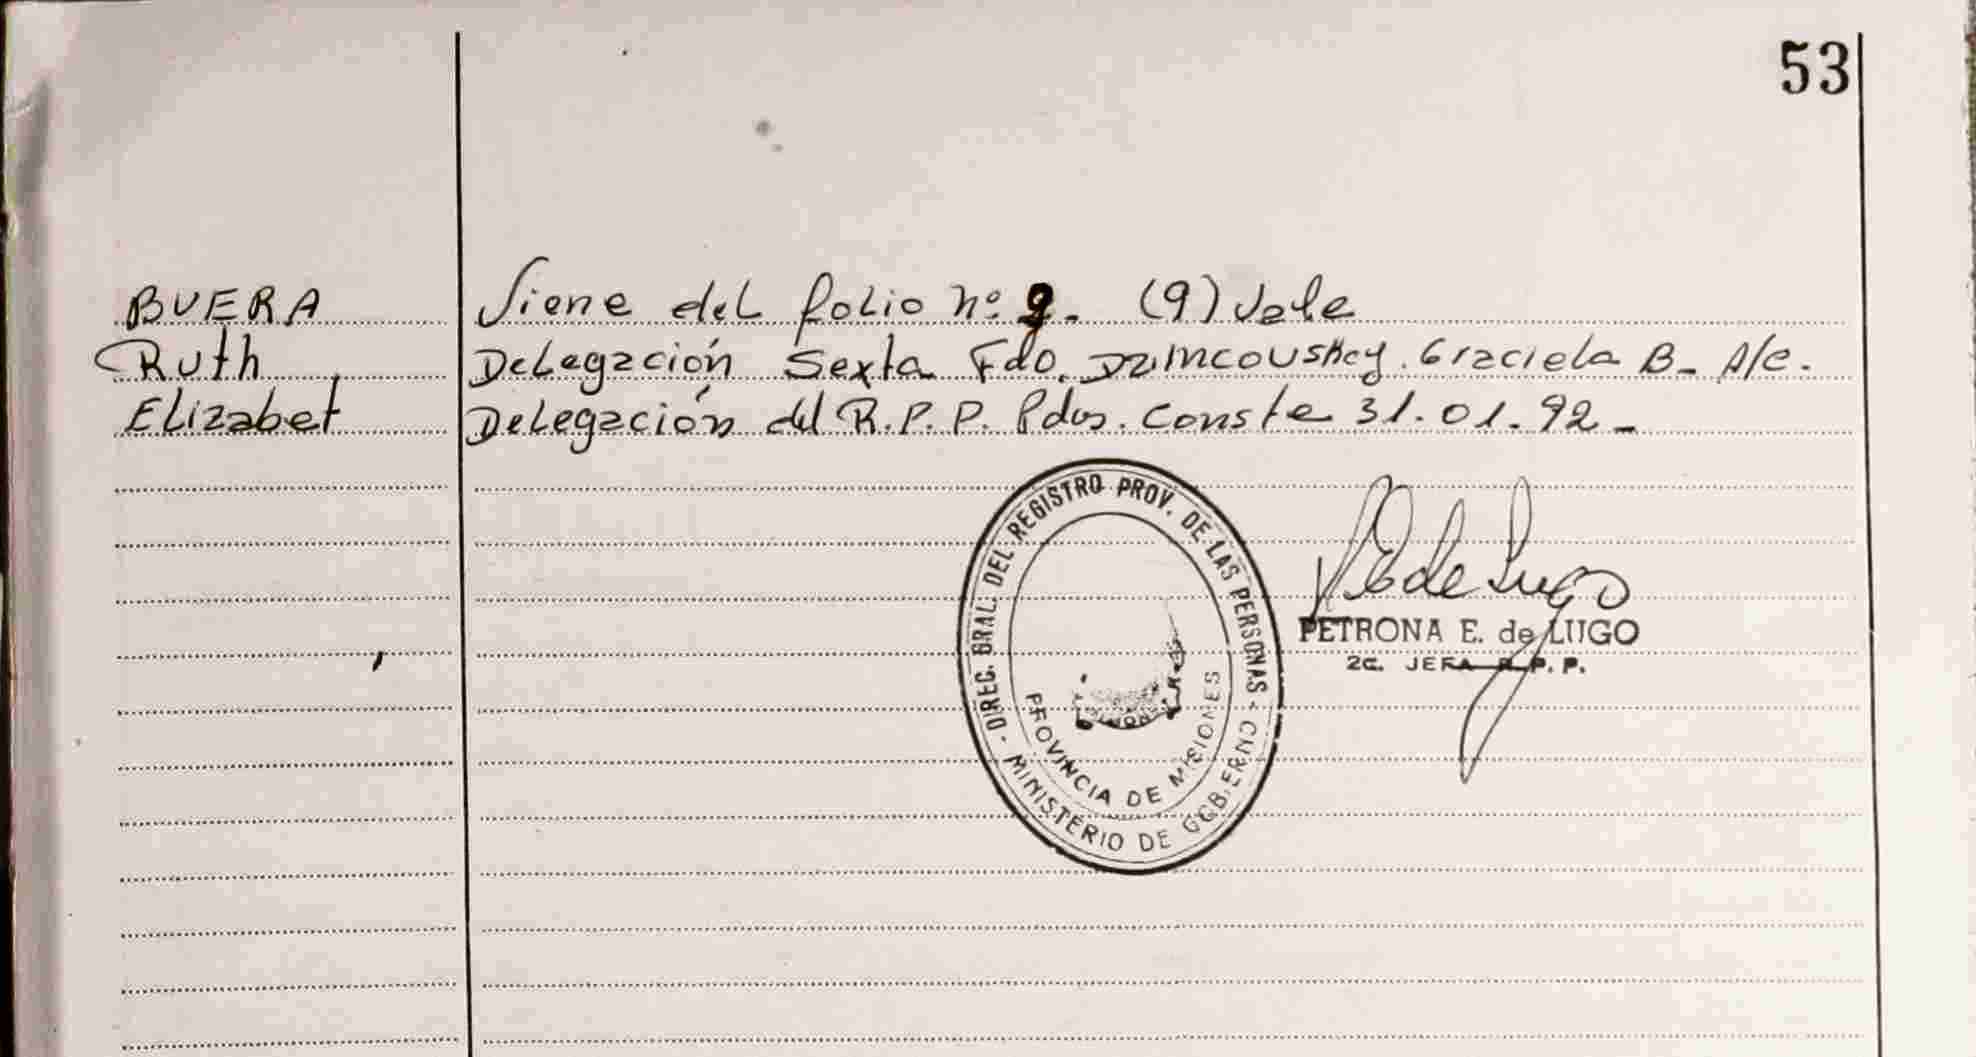 53
BUERA
Ruth
Elizabet
Viene del folio nº 9. (9) Vale
Delegación Sexta Fdo. Graciela B. A/c.
Delegación del R.P.P. Pdas. Conste 31.01.92_
DIREC. GRAL. DEL REGISTRO PROV. DE LAS PERSONAS - MINISTERIO DE GOBIERNO
PROVINCIA DE MISIONES
E de Lugo
PETRONA E. de LUGO
2a. JEFA R.P.P.